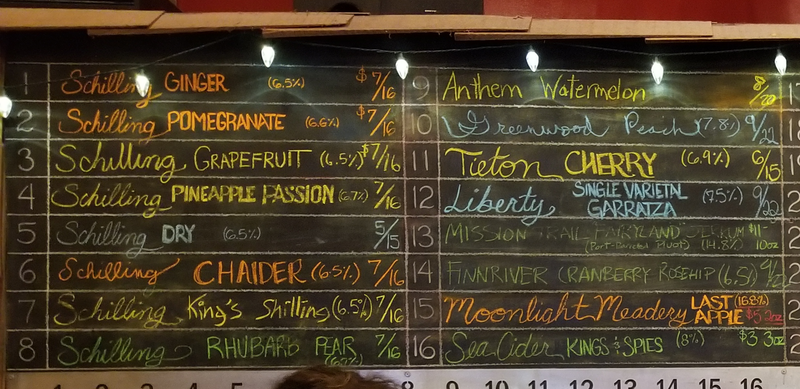 1 Schilling GINGER (6.5%) $7/16
2 Schilling POMEGRANATE (6.6%) $7/16
3 Schilling GRAPEFRUIT (6.5%) $7/16
4 Schilling PINEAPPLE PASSION (6.7%) 7/16
5 Schilling DRY (6.5%) 5/15
6 Schilling CHAIDER (6.5%) 7/16
7 Schilling King's Shilling (6.5%) 7/16
8 Schilling RHUBARB PEAR 7/16
9 Anthem Watermelon 8/20
10 Greenwood Peach (7.8%) 9/22
11 Tieton CHERRY (6.9%) 6/15
12 Liberty SINGLE VARIETAL (7.5%) 9/22
GARRATZA
13 MISSION TRAIL FAIRYLAND $11-
(14.8%) 10oz
14 FINNRIVER CRANBERRY ROSEHIP (6.5%)
15 Moonlight Meadery LAST (16.8%)
APPLE 3oz
16 Sea Cider KINGS & SPIES (8%) $3 3oz
8 9 10 11 12 13 14 15 16